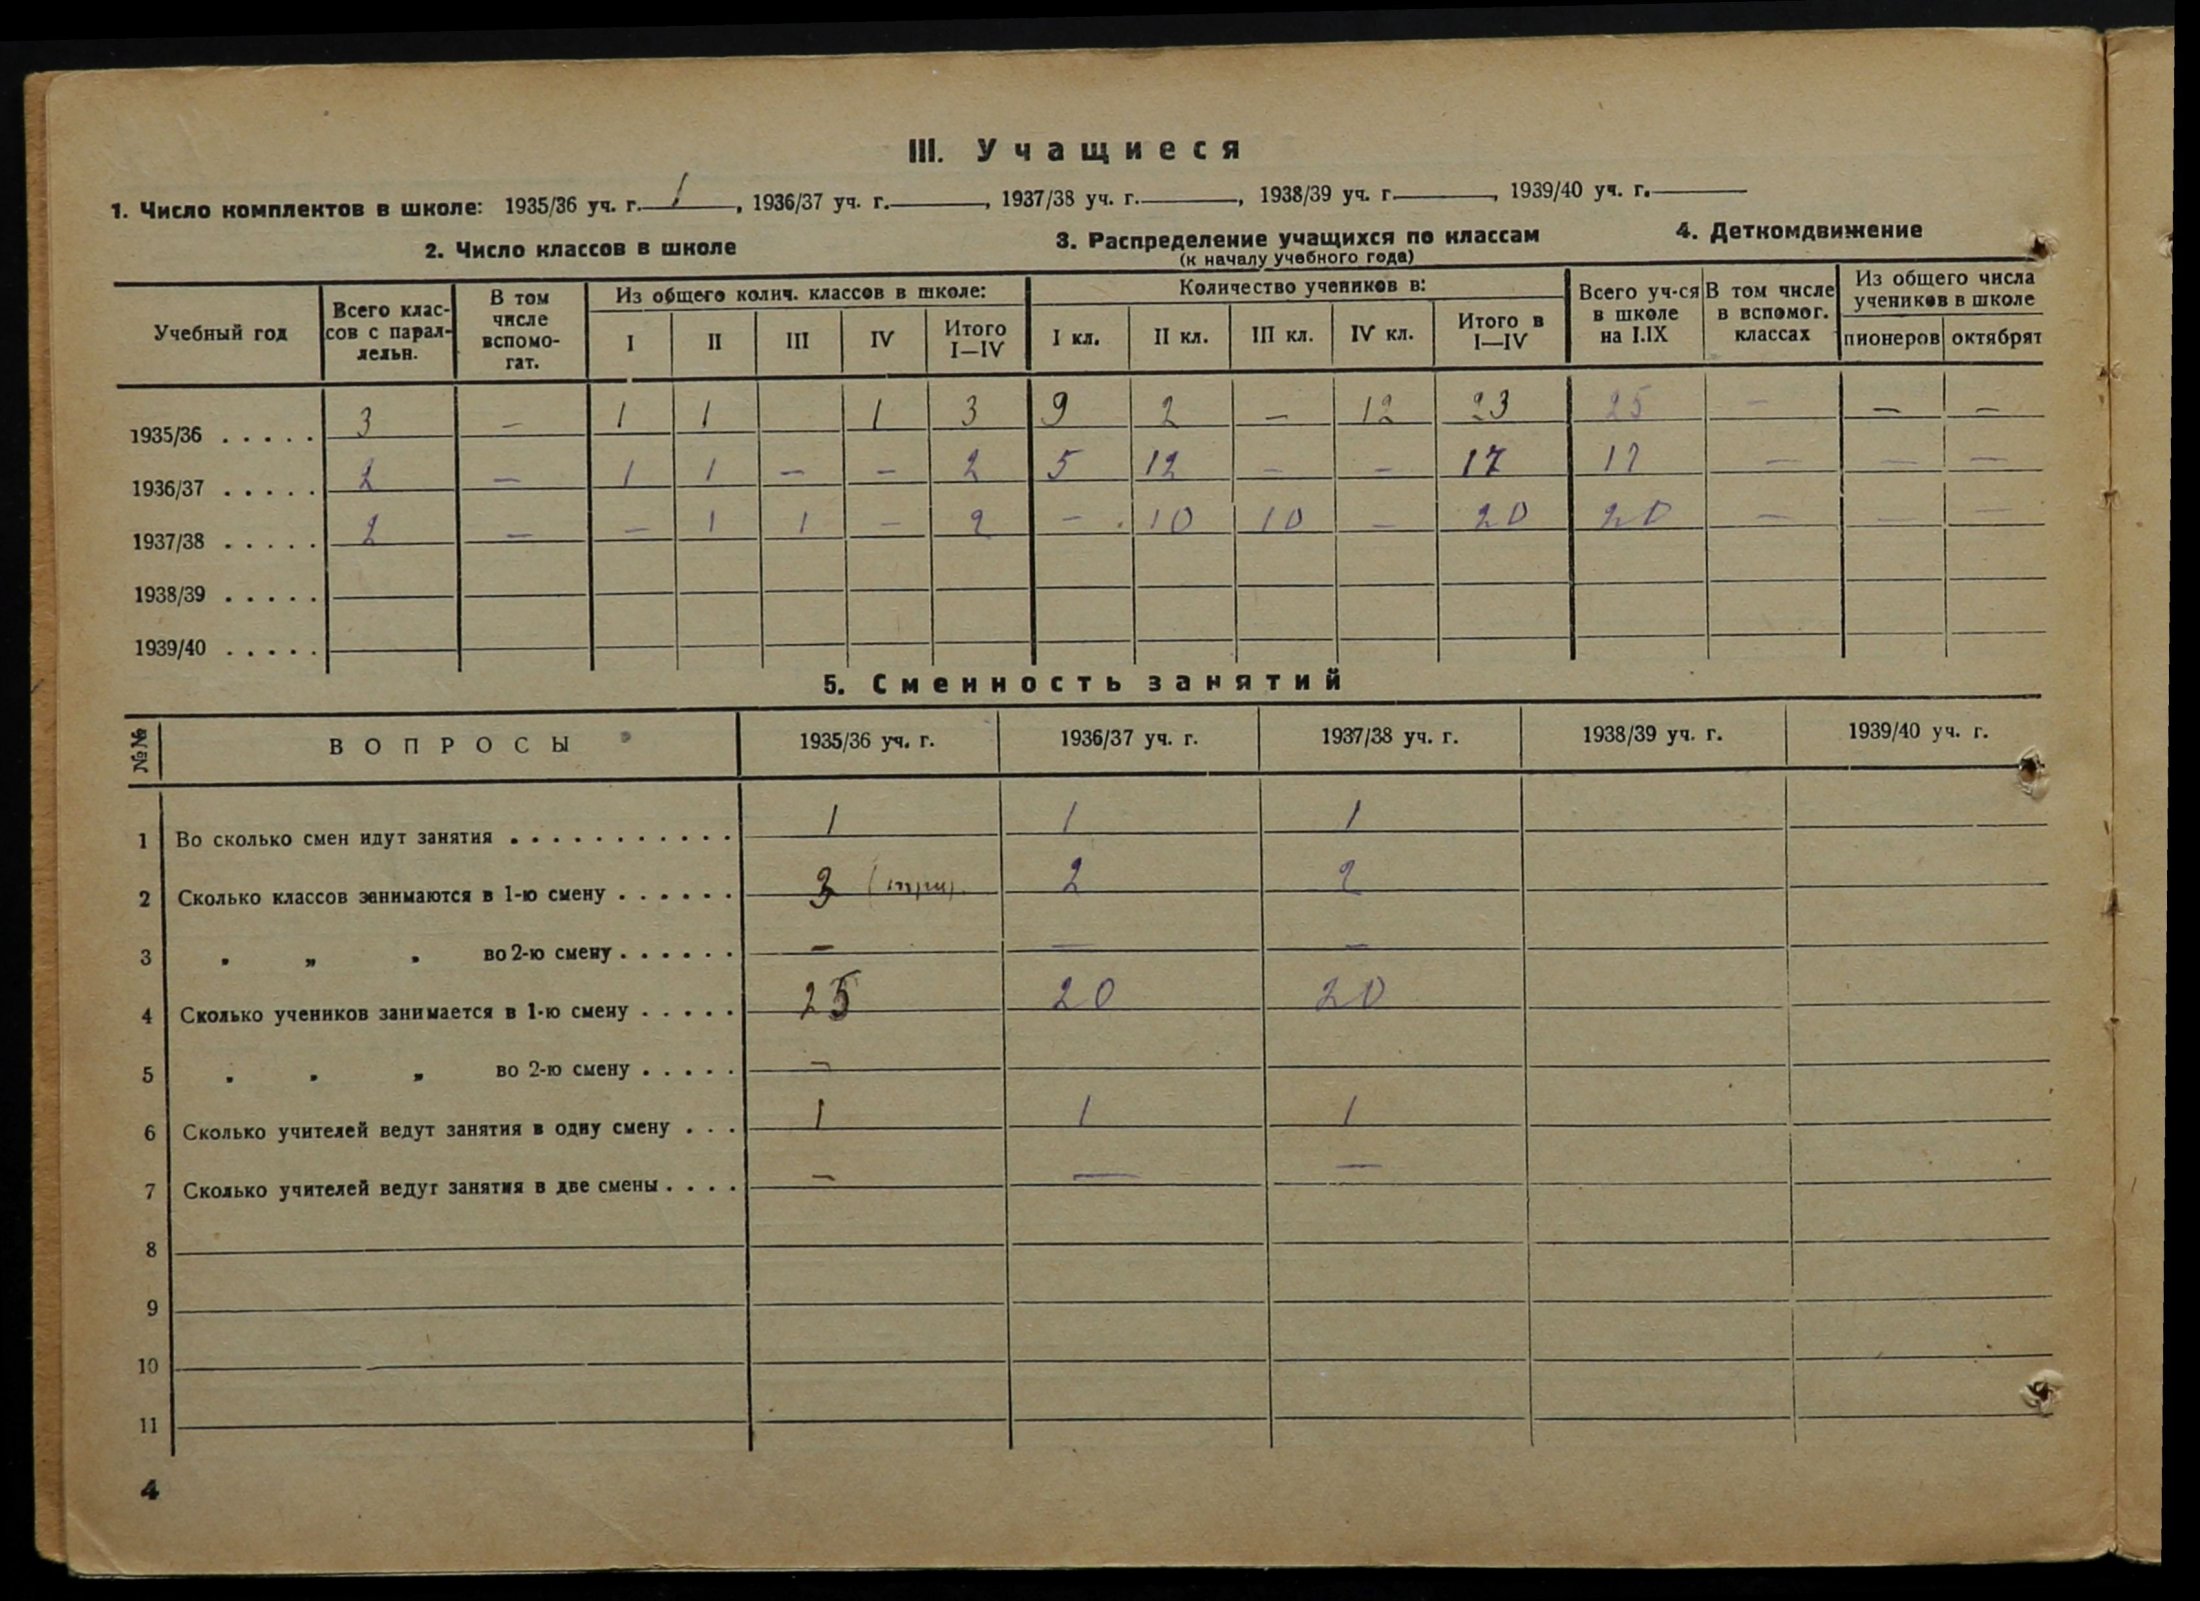 III. Учащиеся
1. Число комплектов в школе: 1935/36 уч. г. 1, 1936/37 уч. г. , 1937/38 уч. г. , 1938/39 уч. г. , 1939/40 уч. г.
2. Число классов в школе 3. Распределение учащихся по классам 4. Деткомдвижение
(к началу учебного года)
Учебный год Всего классов с параллельн. В том числе вспомогат. Из общего колич. классов в школе: I II III IV Итого I—IV Количество учеников в: I кл. II кл. III кл. IV кл. Итого в I—IV Всего уч-ся в школе на I.IX В том числе в вспомог. классах Из общего числа учеников в школе пионеров октябрят
1935/36 . . . . . 3 — 1 1 1 3 9 2 — 12 23 25 — — —
1936/37 . . . . . 2 — 1 1 — — 2 5 12 — — 17 17 — — —
1937/38 . . . . . 2 — — 1 1 — 2 — 10 10 — 20 20 — — —
1938/39 . . . . .
1939/40 . . . . .
5. Сменность занятий
№№ ВОПРОСЫ 1935/36 уч. г. 1936/37 уч. г. 1937/38 уч. г. 1938/39 уч. г. 1939/40 уч. г.
1 Во сколько смен идут занятия . . . . . . . . . . . 1 1 1
2 Сколько классов занимаются в 1-ю смену . . . . . . 3 (три). 2 2
3 " „ " во 2-ю смену . . . . . . — — —
4 Сколько учеников занимается в 1-ю смену . . . . . 25 20 20
5 " " „ во 2-ю смену . . . . . —
6 Сколько учителей ведут занятия в одну смену . . . 1 1 1
7 Сколько учителей ведут занятия в две смены . . . . — — —
8
9
10
11
4